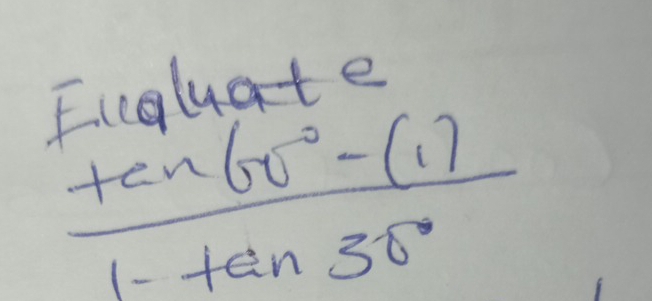 Evaluate
tan 60° - (1)
1 - tan 30°